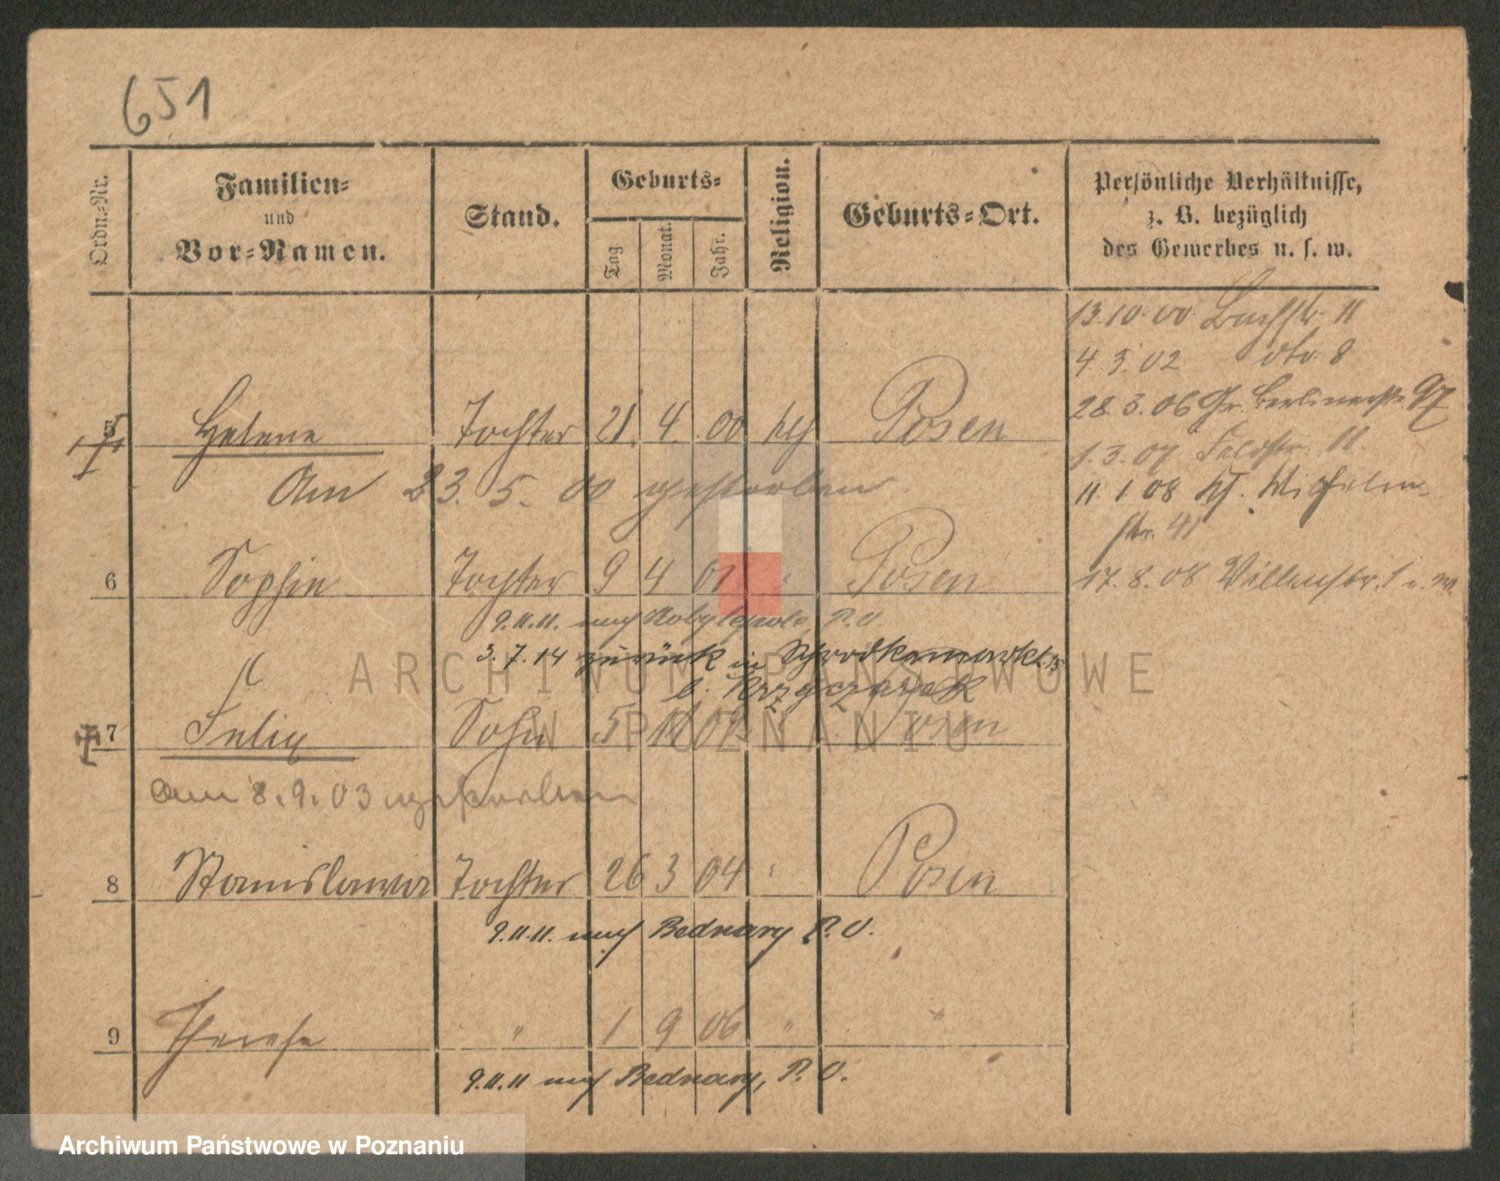 651
Ordn.-Nr.
Familien-
und
Vor-Namen.
Stand.
Geburts-
Tag
Monat.
Jahr.
Religion.
Geburts-Ort.
Persönliche Verhältnisse,
z. B. bezüglich
des Gewerbes u. s. w.
13.10.00 Bachstr. 11
4 3. 02 dto. 8
28. 3. 06 Gr. Berlinerstr. 97
5 Helene Tochter 21. 4. 00 kth Posen
1. 3. 07 Feldstr. 11.
Am 23. 5. 00 gestorben
11 1 08 Kl. Wilhelm-
str. 41
6 Sophie Tochter 9 4 01 " Posen
17. 8. 08 Villenstr.
9.11.11. nach Kobylepole, P.O.
3.7.14 zurück in Schrodkamarkt 15
b. Krzyczasek
7 Felix Sohn 5 11 02 Posen
am 8.9.03 gestorben
8 Stanislawa Tochter 26 3 04 " Posen
9.11.11. nach Bednary P.O.
9 Therese " 1 9 06 " "
9.11.11 nach Bednary, P.O.
ARCHIWUM PAŃSTWOWE
W POZNANIU
Archiwum Państwowe w Poznaniu